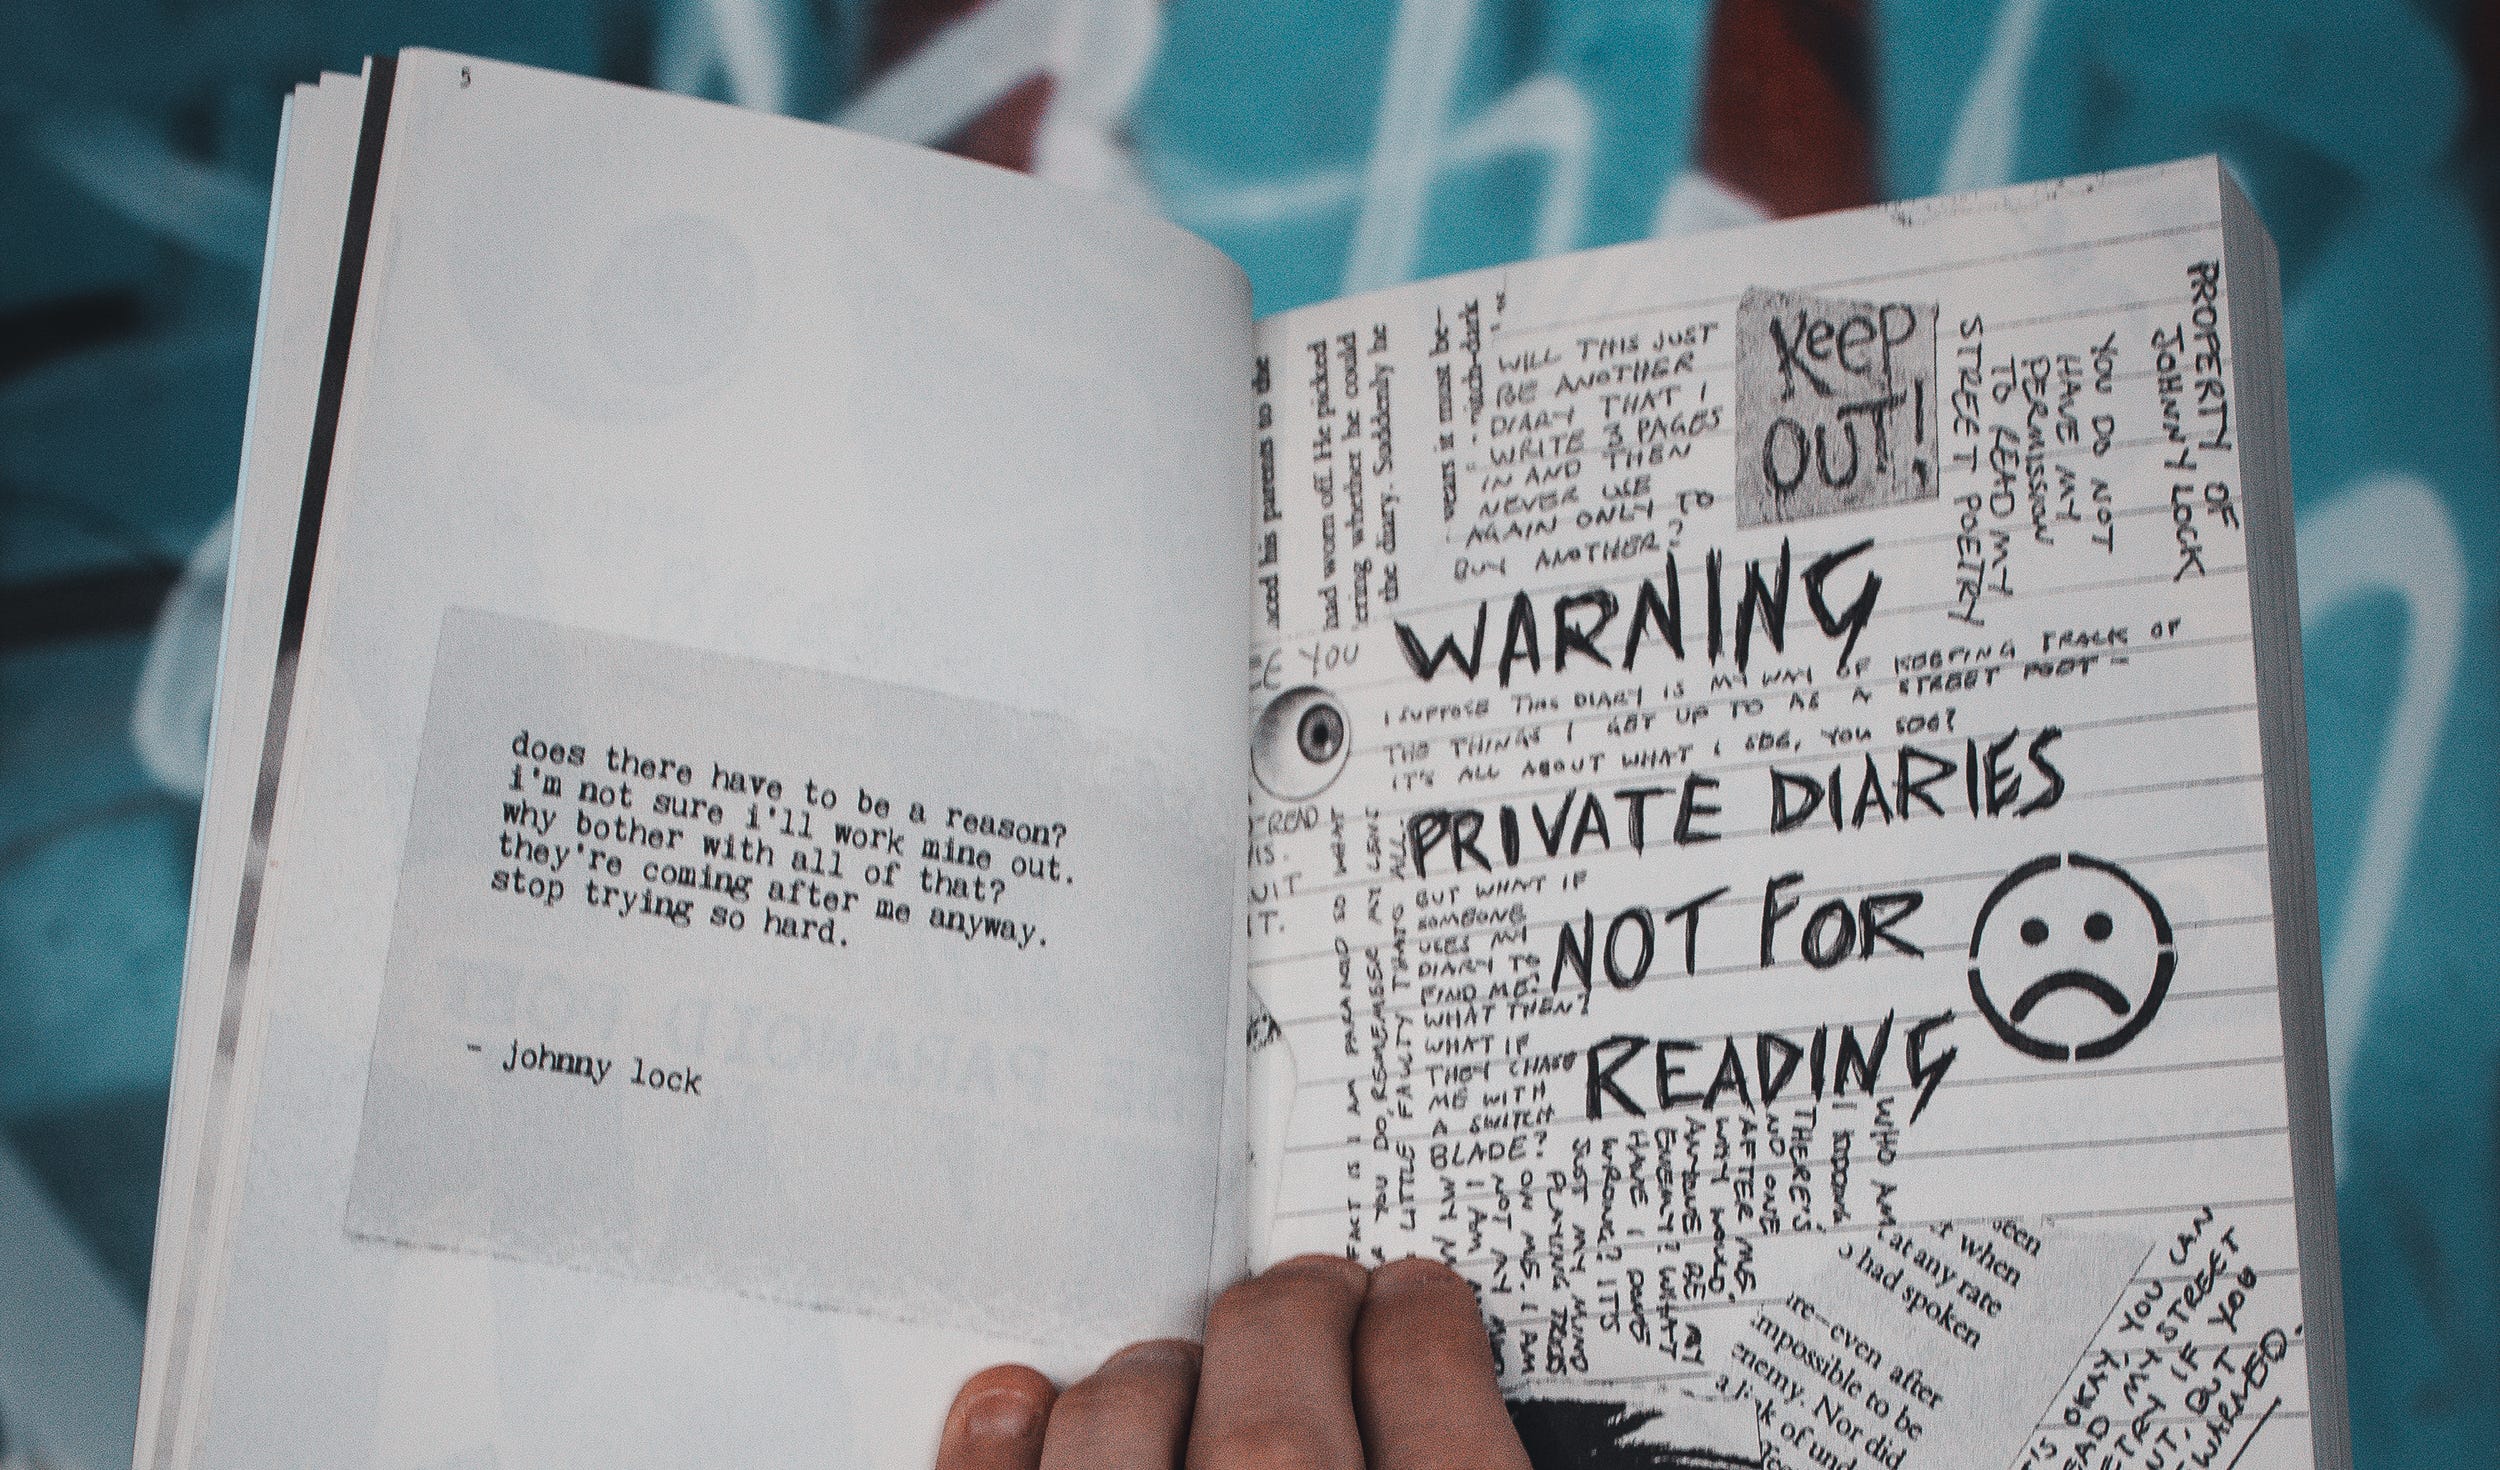 5
does there have to be a reason?
i'm not sure i'll work mine out.
why bother with all of that?
they're coming after me anyway.
stop trying so hard.
- johnny lock
aced his parents to the
had worn off. He picked
ering whether he could
the diary. Suddenly he
years it must be—
YOU
WILL THIS JUST
BE ANOTHER
DIARY THAT I
WRITE 3 PAGES
IN AND THEN
NEVER USE
AGAIN ONLY TO
BUY ANOTHER?
KEEP
OUT!
PROPERTY OF
JOHNNY LOCK
YOU DO NOT
HAVE MY
PERMISSION
TO READ MY
STREET POETRY
WARNING
I SUPPOSE THIS DIARY IS MY WAY OF KEEPING TRACK OF
THE THINGS I GET UP TO AS A STREET POET -
IT'S ALL ABOUT WHAT I SEE, YOU SEE?
PRIVATE DIARIES
NOT FOR
READING
READ
IS.
UIT
IT.
FACT IS I AM PARANOID SO WHAT
YOU DO, REMEMBER MY
LITTLE FAULTY THATS ALL.
BUT WHAT IF
SOMEONE
USES MY
DIARY TO
FIND ME?
WHAT THEN?
WHAT IF
THEY CHASE
ME WITH
A SWITCH
BLADE?
WHO AM
I KIDDING
THERE'S
NO ONE
AFTER ME.
WHY WOULD
ANYONE BE MY
ENEMY? WHAT
HAVE I DONE
WRONG? ITS
JUST MY MIND
PLAYING TRICKS
ON ME. I AM
NOT MY
I AM
een
t when
at any rate
o had spoken
re—even after
mpossible to be
enemy. Nor did
k of und
OKAY, YOU CAN
EAD MY STREET
ETRY IF YOU
UT, BUT YOU
WARNED.